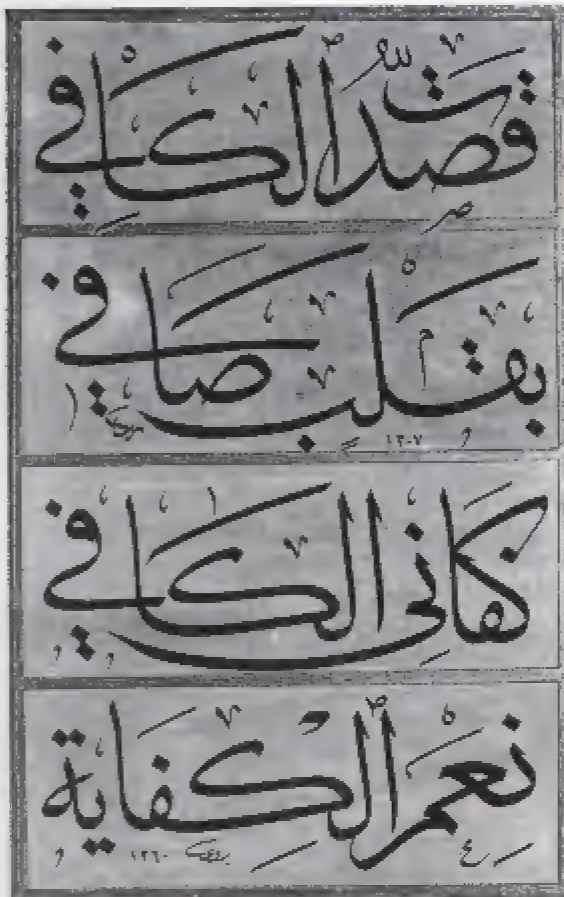 قصدت الكافي
بقلب صافي
١٣٠٧
كفاني الكافي
نعم الكفاية
١٢٦٠